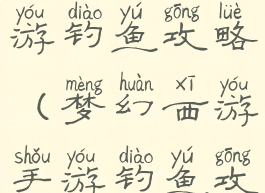 yóu diào yú gōng lüè
游钓鱼攻略
mèng huàn xī yóu
（梦幻西游
shǒu yóu diào yú gōng
手游钓鱼攻